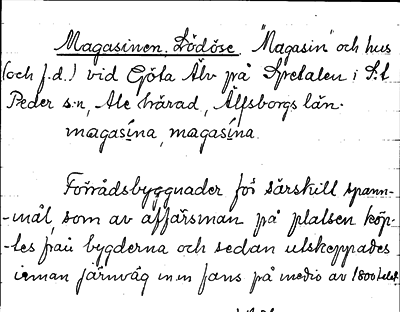 Magasinen, Lödöse. "Magasin" och hus
(och f.d.) vid Göta Älv på Spetalen i S:t
Peder s:n, Ale härad, Älfsborgs län.
magasína, magasína.
Förrådsbyggnader för särskilt spann-
-mål, som av affärsmän på platsen köp-
-tes från bygderna och sedan utskeppades
innan järnväg m.m fans på medio av 1800 talet